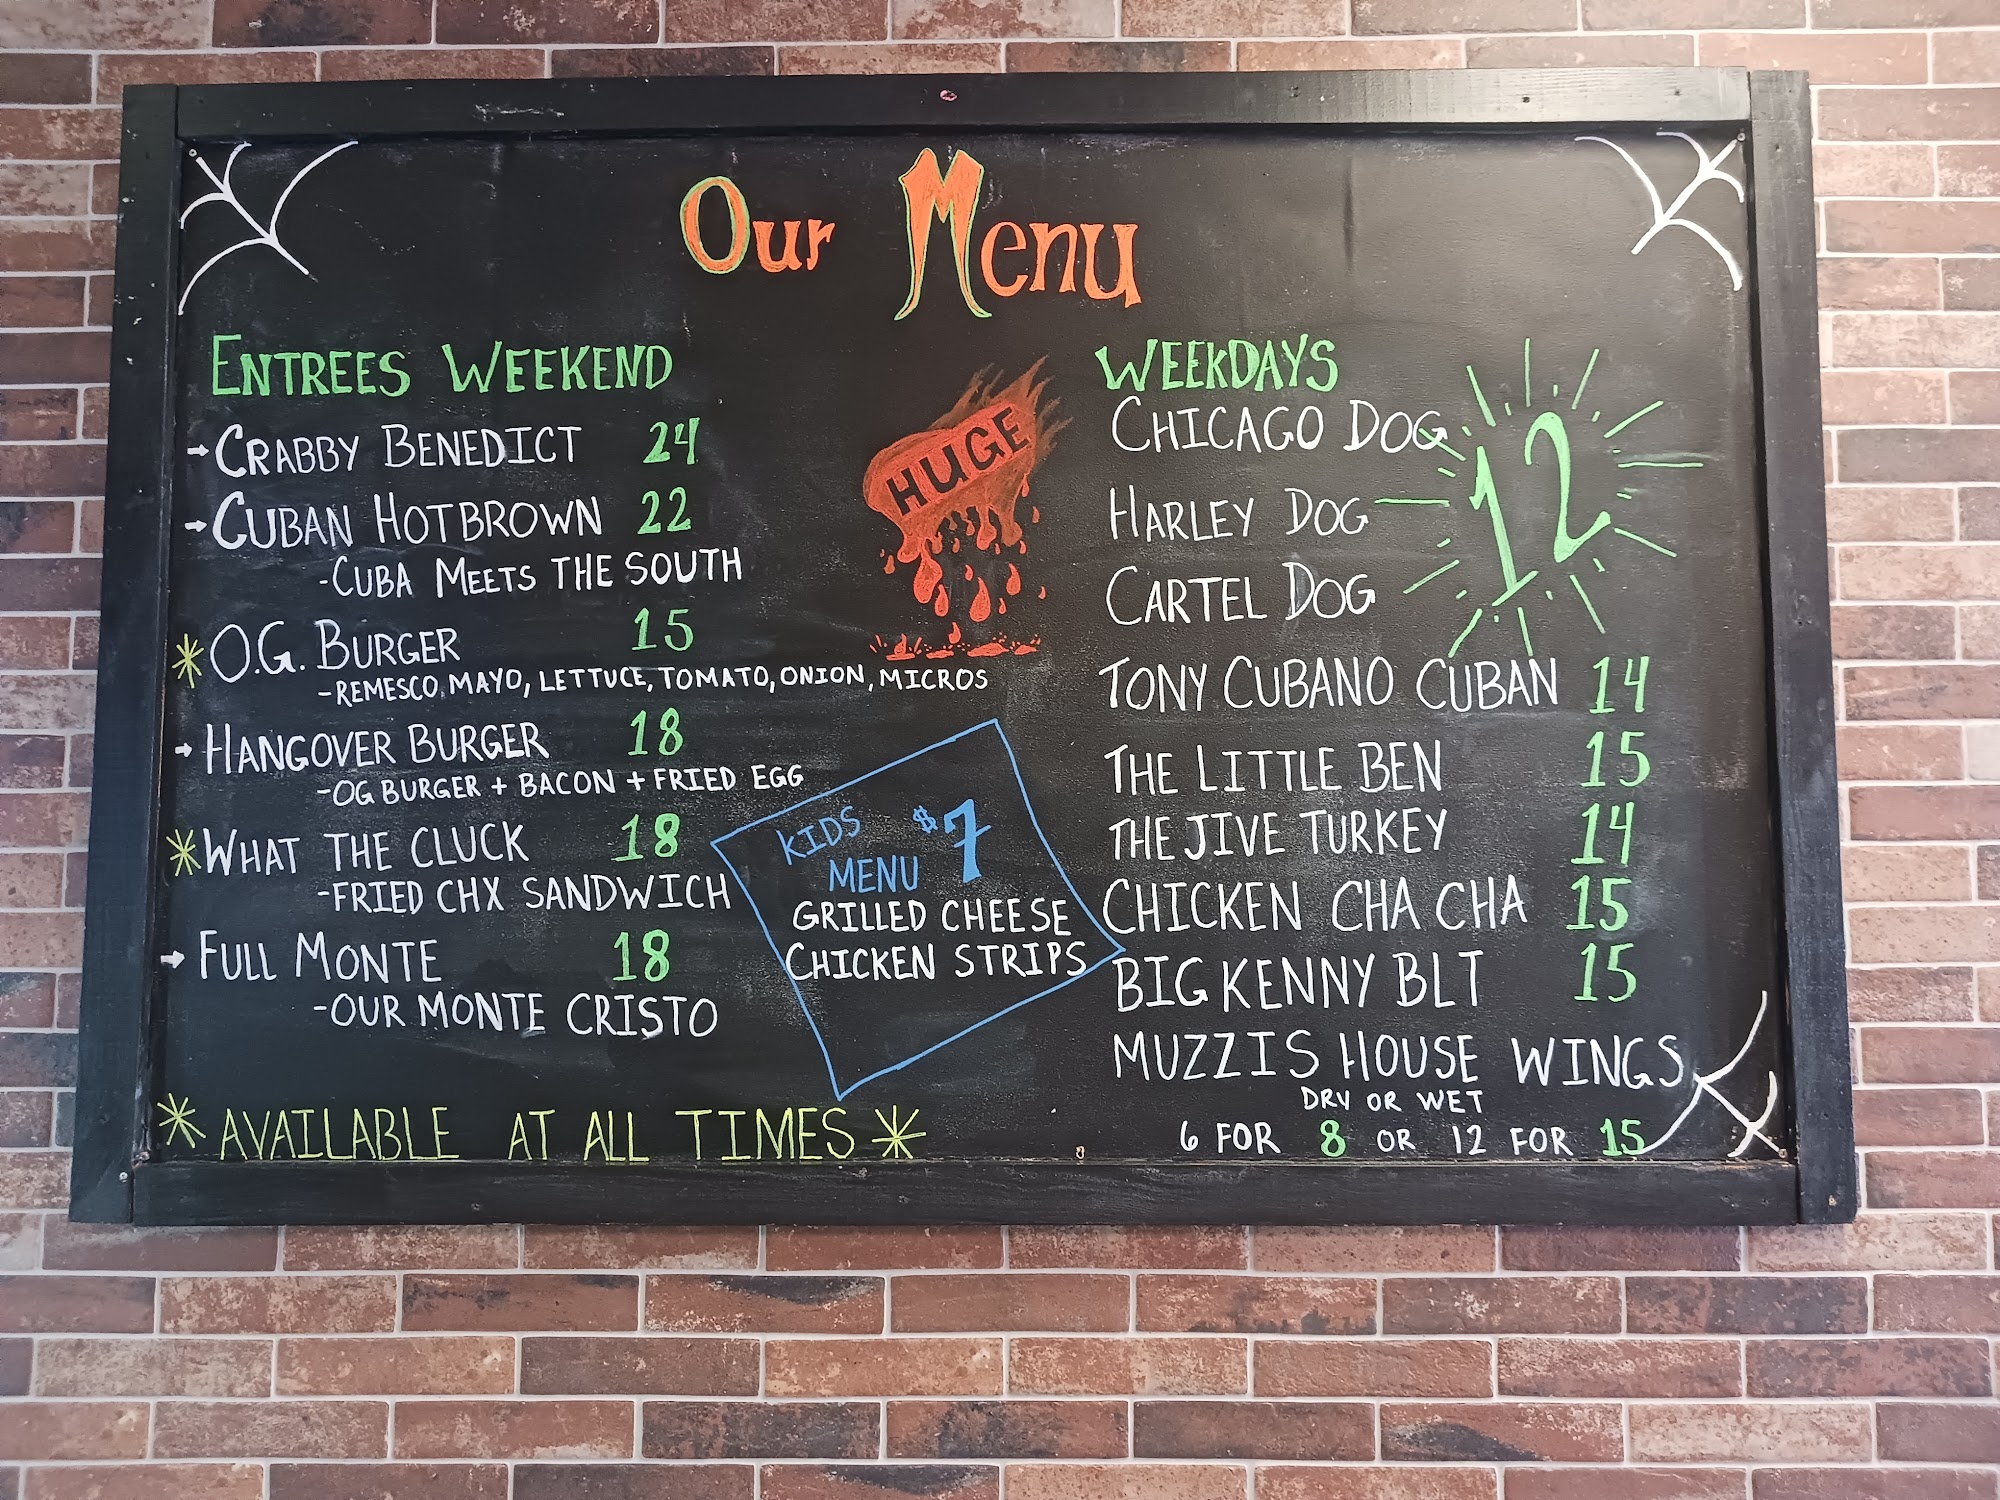 Our Menu
ENTREES WEEKEND
CRABBY BENEDICT 24
CUBAN HOTBROWN 22
-CUBA MEETS THE SOUTH
*O.G. BURGER 15
-REMESCO MAYO, LETTUCE, TOMATO, ONION, MICROS
HANGOVER BURGER 18
-OG BURGER + BACON + FRIED EGG
*WHAT THE CLUCK 18
-FRIED CHX SANDWICH
FULL MONTE 18
-OUR MONTE CRISTO
*AVAILABLE AT ALL TIMES*
HUGE
KIDS
MENU $7
GRILLED CHEESE
CHICKEN STRIPS
WEEKDAYS
CHICAGO DOG
HARLEY DOG 12
CARTEL DOG
TONY CUBANO CUBAN 14
THE LITTLE BEN 15
THE JIVE TURKEY 14
CHICKEN CHA CHA 15
BIG KENNY BLT 15
MUZZIS HOUSE WINGS
DRY OR WET
6 FOR 8 OR 12 FOR 15